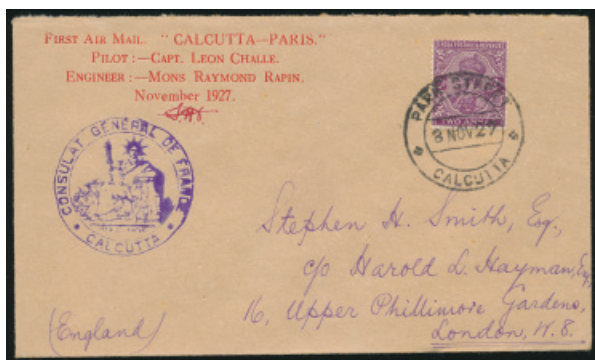 FIRST AIR MAIL. "CALCUTTA—PARIS."
PILOT :—CAPT. LEON CHALLE.
ENGINEER :—MONS RAYMOND RAPIN.
November 1927.
CONSULAT GENERAL DE FRANCE
CALCUTTA
INDIA POSTAGE & REVENUE
TWO ANNAS
PARK STREET
8 NOV 27
CALCUTTA
Stephen H. Smith, Esq.,
c/o Harold L. Hayman, Esq.
16, Upper Phillimore Gardens,
London, W. 8.
(England)